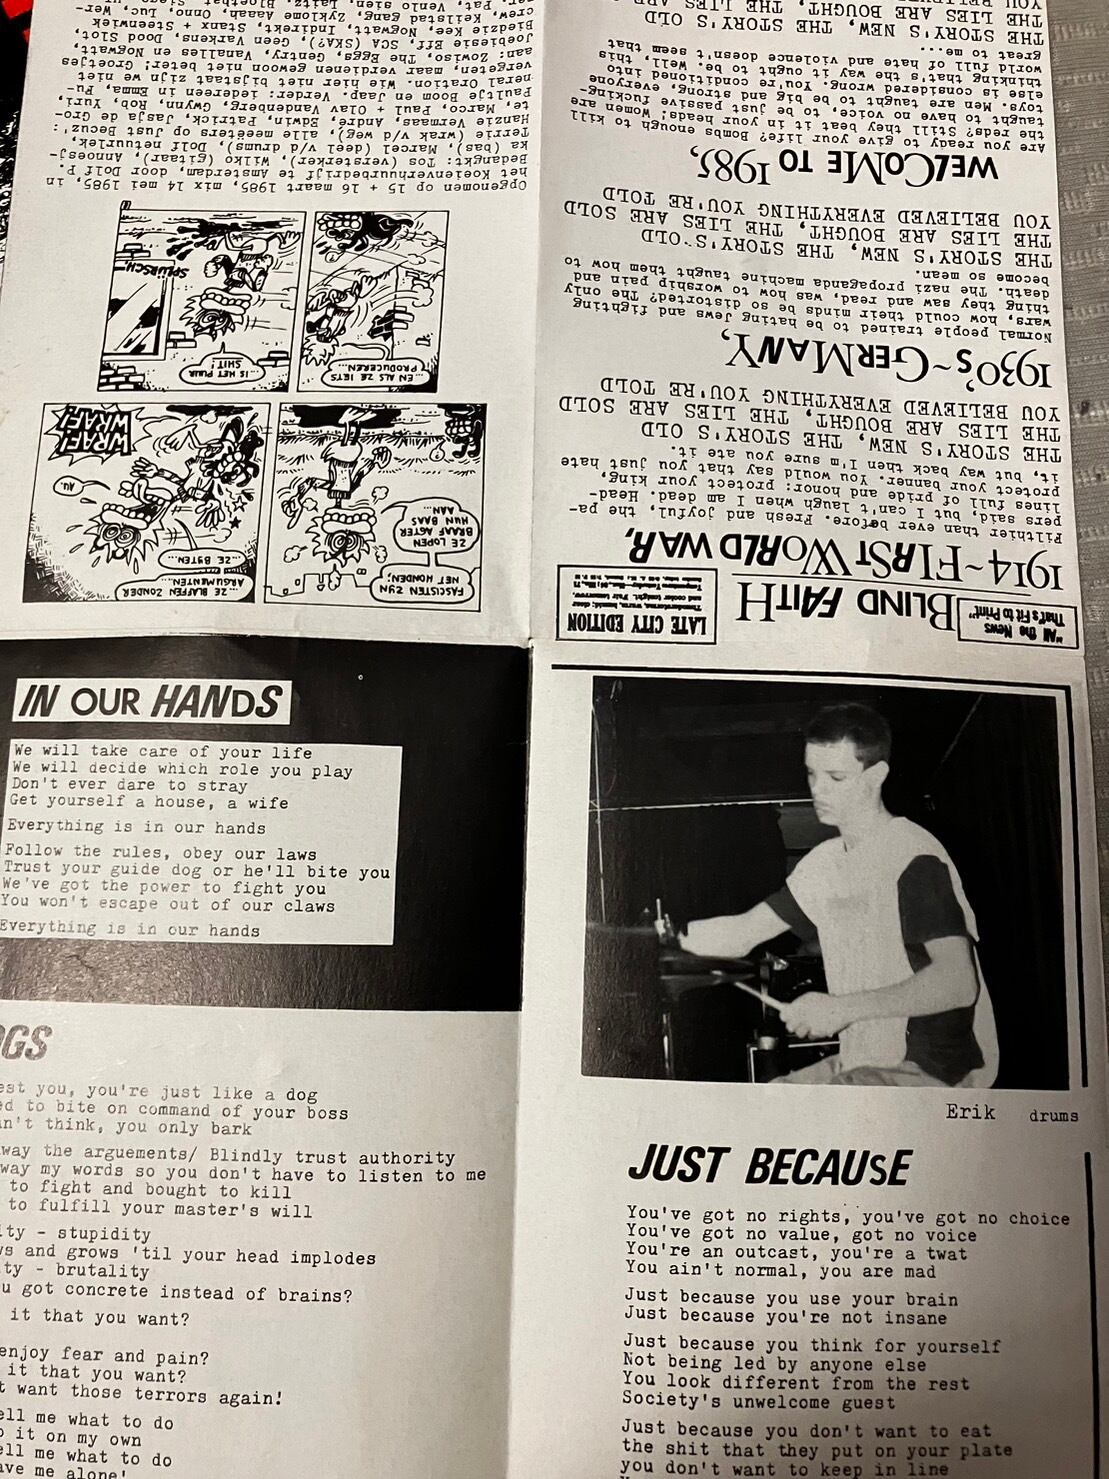 IN OUR HANDS
We will take care of your life
We will decide which role you play
Don't ever dare to stray
Get yourself a house, a wife
Everything is in our hands
Follow the rules, obey our laws
Trust your guide dog or he'll bite you
We've got the power to fight you
You won't escape out of our claws
Everything is in our hands
OGS
est you, you're just like a dog
ed to bite on command of your boss
an't think, you only bark
way the arguements/ Blindly trust authority
way my words so you don't have to listen to me
to fight and bought to kill
to fulfill your master's will
ity - stupidity
ws and grows 'til your head implodes
ity - brutality
u got concrete instead of brains?
it that you want?
enjoy fear and pain?
it that you want?
t want those terrors again!
ell me what to do
o it on my own
ell me what to do
ave me alone!
Erik drums
JUST BECAUSE
You've got no rights, you've got no choice
You've got no value, got no voice
You're an outcast, you're a twat
You ain't normal, you are mad
Just because you use your brain
Just because you're not insane
Just because you think for yourself
Not being led by anyone else
You look different from the rest
Society's unwelcome guest
Just because you don't want to eat
the shit that they put on your plate
you don't want to keep in line
"All the News
That's Fit to Print"
BLIND FAITH
LATE CITY EDITION
1914~FIRST WORLD WAR,
Filthier than ever before. Fresh and joyful, the pa-
pers said, but I can't laugh when I am dead. Head-
lines full of pride and honor: protect your king,
protect your banner. You would say that you just hate
it, but way back then I'm sure you ate it.
THE STORY'S NEW, THE STORY'S OLD
THE LIES ARE BOUGHT, THE LIES ARE SOLD
YOU BELIEVED EVERYTHING YOU'RE TOLD
1930's~GERMANY,
Normal people trained to be hating Jews and fighting
wars, how could their minds be so distorted? The only
thing they saw and read, was how to worship pain and
death. The nazi propaganda machine taught them how to
become so mean.
THE STORY'S NEW, THE STORY'S OLD
THE LIES ARE BOUGHT, THE LIES ARE SOLD
YOU BELIEVED EVERYTHING YOU'RE TOLD
WELCOME TO 1985,
Are you ready to give your life? Bombs enough to kill
the reds? Still they beat it in your heads: Women are
taught to have no voice, to be just passive fucking-
toys. Men are taught to be big and strong, everyone
else is considered wrong. You're conditioned into
thinking that's the way it ought to be. Well, this
world full of hate and violence doesn't seem that
great to me...
THE STORY'S NEW, THE STORY'S OLD
THE LIES ARE BOUGHT, THE LIES ARE
FASCISTEN ZIJN
NET HONDEN;
ZE LOPEN
BRAAF ACHTER
HUN BAAS
AAN...
ZE BLAFFEN ZONDER
ARGUMENTEN...
ZE BYTEN...
AU.
WRAF!
WRAF!
...EN ALS ZE IETS
PRODUCEREN...
IS HET PUUR
SHIT!
SPLURSCH
Opgenomen op 15 + 16 maart 1985, mix 14 mei 1985, in
het Koeienverhuurbedrijf te Amsterdam, door Dolf P.
Bedankt: Tos (versterker), Wilko (gitaar), Annoesj-
ka (bas), Marcel (deel v/d drums), Dolf netuurlek,
Terrie (wrak v/d weg), alle meesters op Just Becuz':
Hanzie Vermaas, André, Edwin, Patrick, Jasja de Gro-
te, Marco, Paul + Olav Vandenberg, Gwynn, Rob, Yuri,
Paultje Boom en Jaap. Verder: iedereen in Emma, Fu-
neral Oration. Wie hier niet bijstaat zijn we niet
vergeten, maar verdienen gewoon niet beter; Groetjes
aan: Zowiso, The Eggs, Gentry, Vanalles en Nogwatt,
Joeblesie Eff, SCA (SKA?), Geen Varkens, Dood Slot,
Biedzie Kee, Nogwatt, Indirekt, Stanx + Steenwijk
crew, Keilstad gang, Zyklome Aaaah, Onno, Luc, Wer-